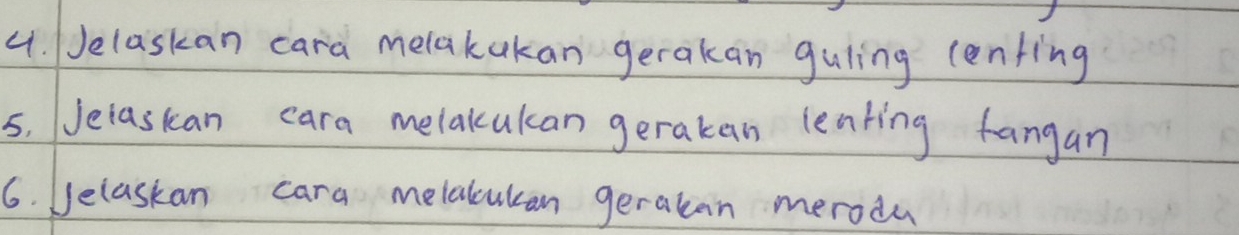 4. Jelaskan cara melakukan gerakan guling lenting
5. Jelaskan cara melakukan gerakan lenting tangan
6. Jelaskan cara melakukan gerakan meroda